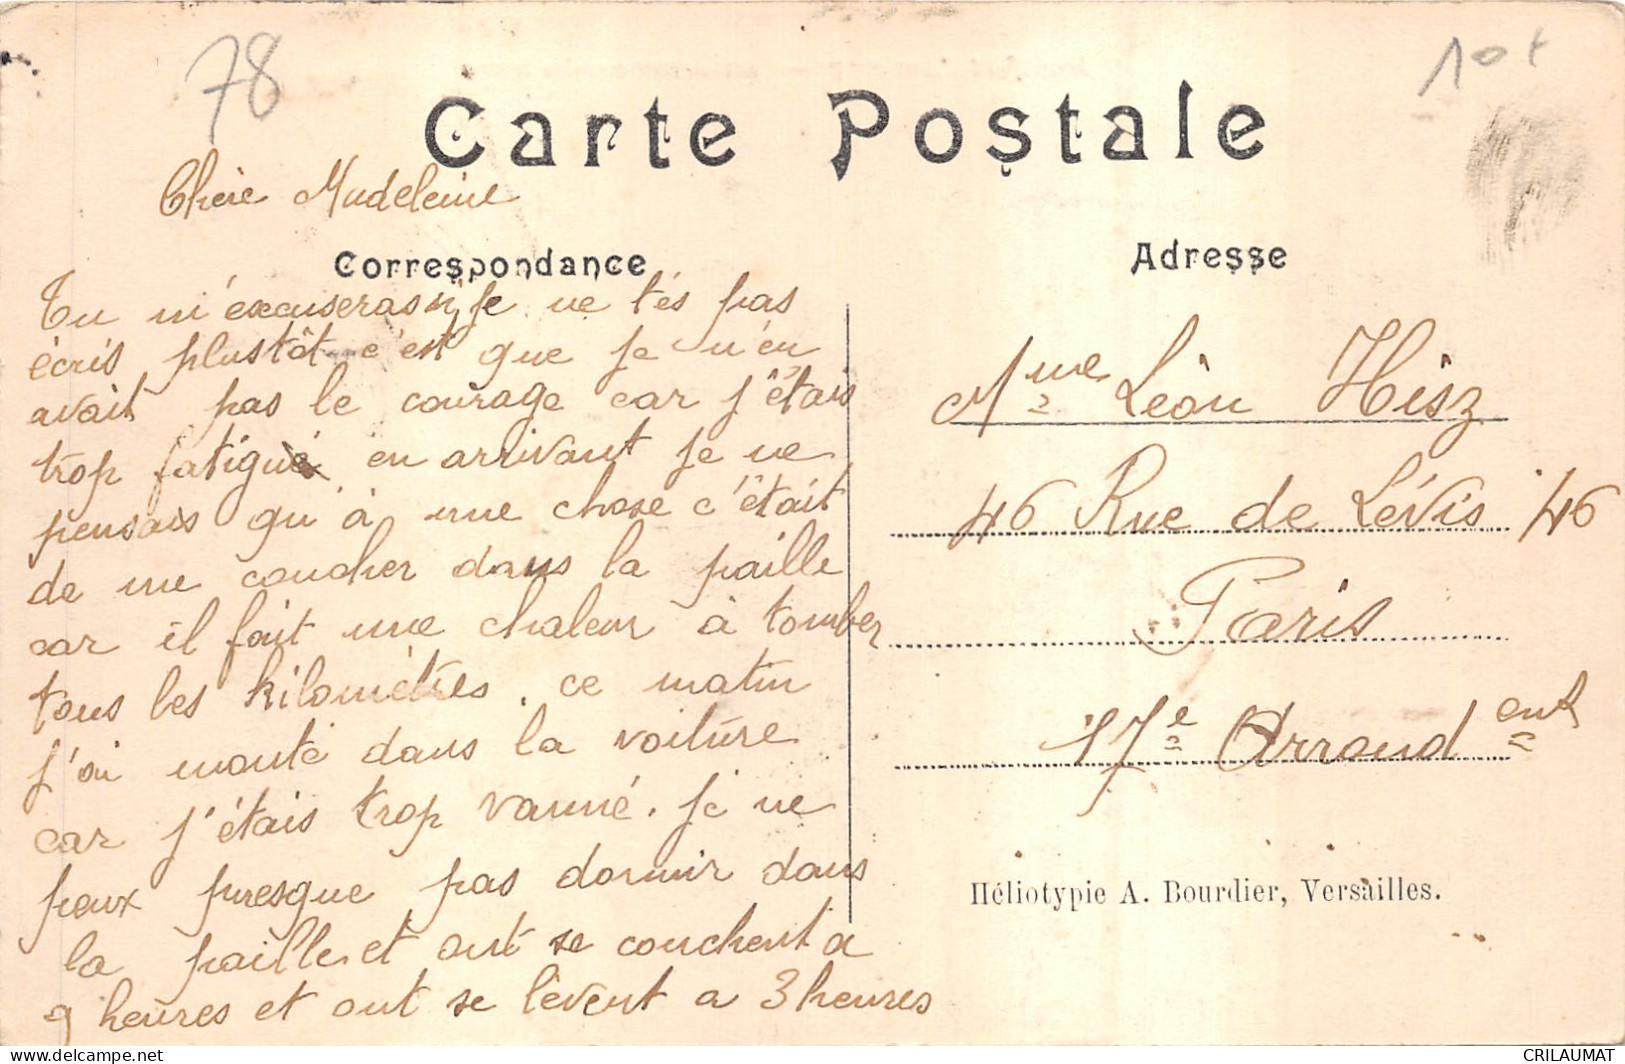 78
10t
Carte Postale
Chère Madeleine
Correspondance
Tu m'excuseras je ne tés pas
écris plustôt c'est que je n'en
avait pas le courage car j'étais
trop fatigué en arrivant je ne
pensais qu'à une chose c'était
de me coucher dans la paille
car il fait une chaleur à tomber
tous les kilomètres. ce matin
j'ai monté dans la voiture
car j'étais trop vanné. je ne
peux presque pas dormir dans
la paille et ont se couchent a
9 heures et ont se lèvent a 3 heures
Adresse
Mme Léon Hisz
46 Rue de Lévis 46
Paris
17e Arrondent
Héliotypie A. Bourdier, Versailles.
CRILAUMAT
delcampe.net